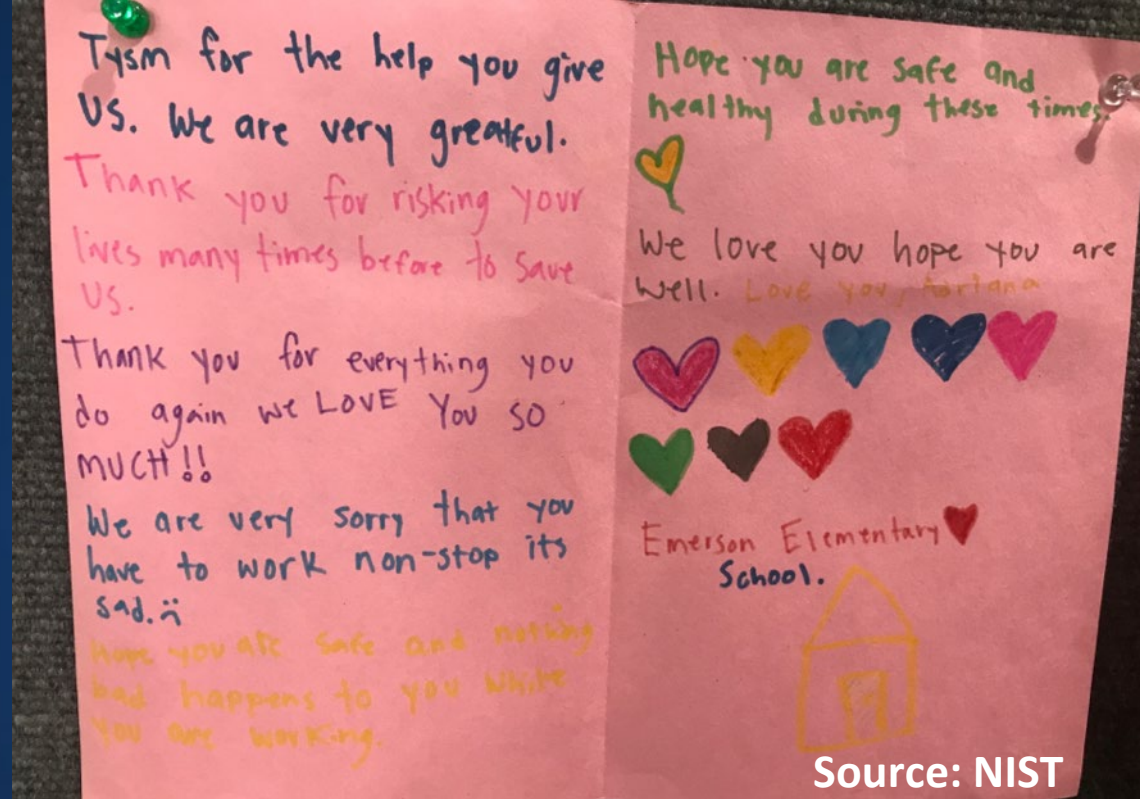 Tysm for the help you give
US. We are very greatful.
Thank you for risking your
lives many times before to save
US.
Thank you for everything you
do again we LOVE You SO
MUCH!!
We are very sorry that you
have to work non-stop its
sad.
Hope you are safe and nothing
bad happens to you while
you are working.
Hope you are safe and
healthy during these times.
We love you hope you are
well. Love you, Adriana
Emerson Elementary
School.
Source: NIST